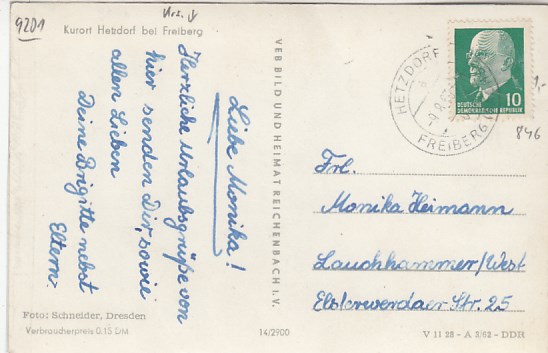 9201
Urs. ↓
Kurort Hetzdorf bei Freiberg
Liebe Monika!
Herzliche Urlaubsgrüße von
hier senden Dir, sowie
allen Lieben
Deine Brigitte nebst
Eltern.
Foto: Schneider, Dresden
Verbraucherpreis 0.15 DM
VEB BILD UND HEIMAT REICHENBACH i. V.
14/2900
HETZDORF
FREIBERG
DEUTSCHE
DEMOKRATISCHE REPUBLIK
10
846
Frl.
Monika Heimann
Lauchhammer/West
Elsterwerdaer Str. 25
V 11 28 - A 2/62 - DDR